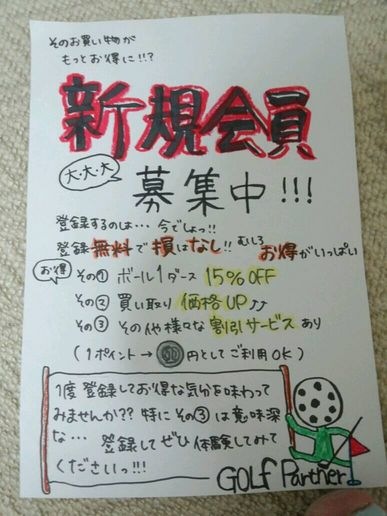 そのお買い物が
もっとお得に!!?
新規会員
大・大・大
募集中!!!
登録するのは… 今でしょっ!!
登録無料で損はなし!! むしろお得がいっぱい
お得
その① ボール1ダース 15%OFF
その② 買い取り 価格UP♪♪
その③ その他様々な割引サービスあり
(1ポイント→ 円としてご利用OK)
1度登録してお得な気分を味わって
みませんか?? 特にその③は意味深
な… 登録してぜひ体験してみて
くださいっ!!!
GOLF Partner